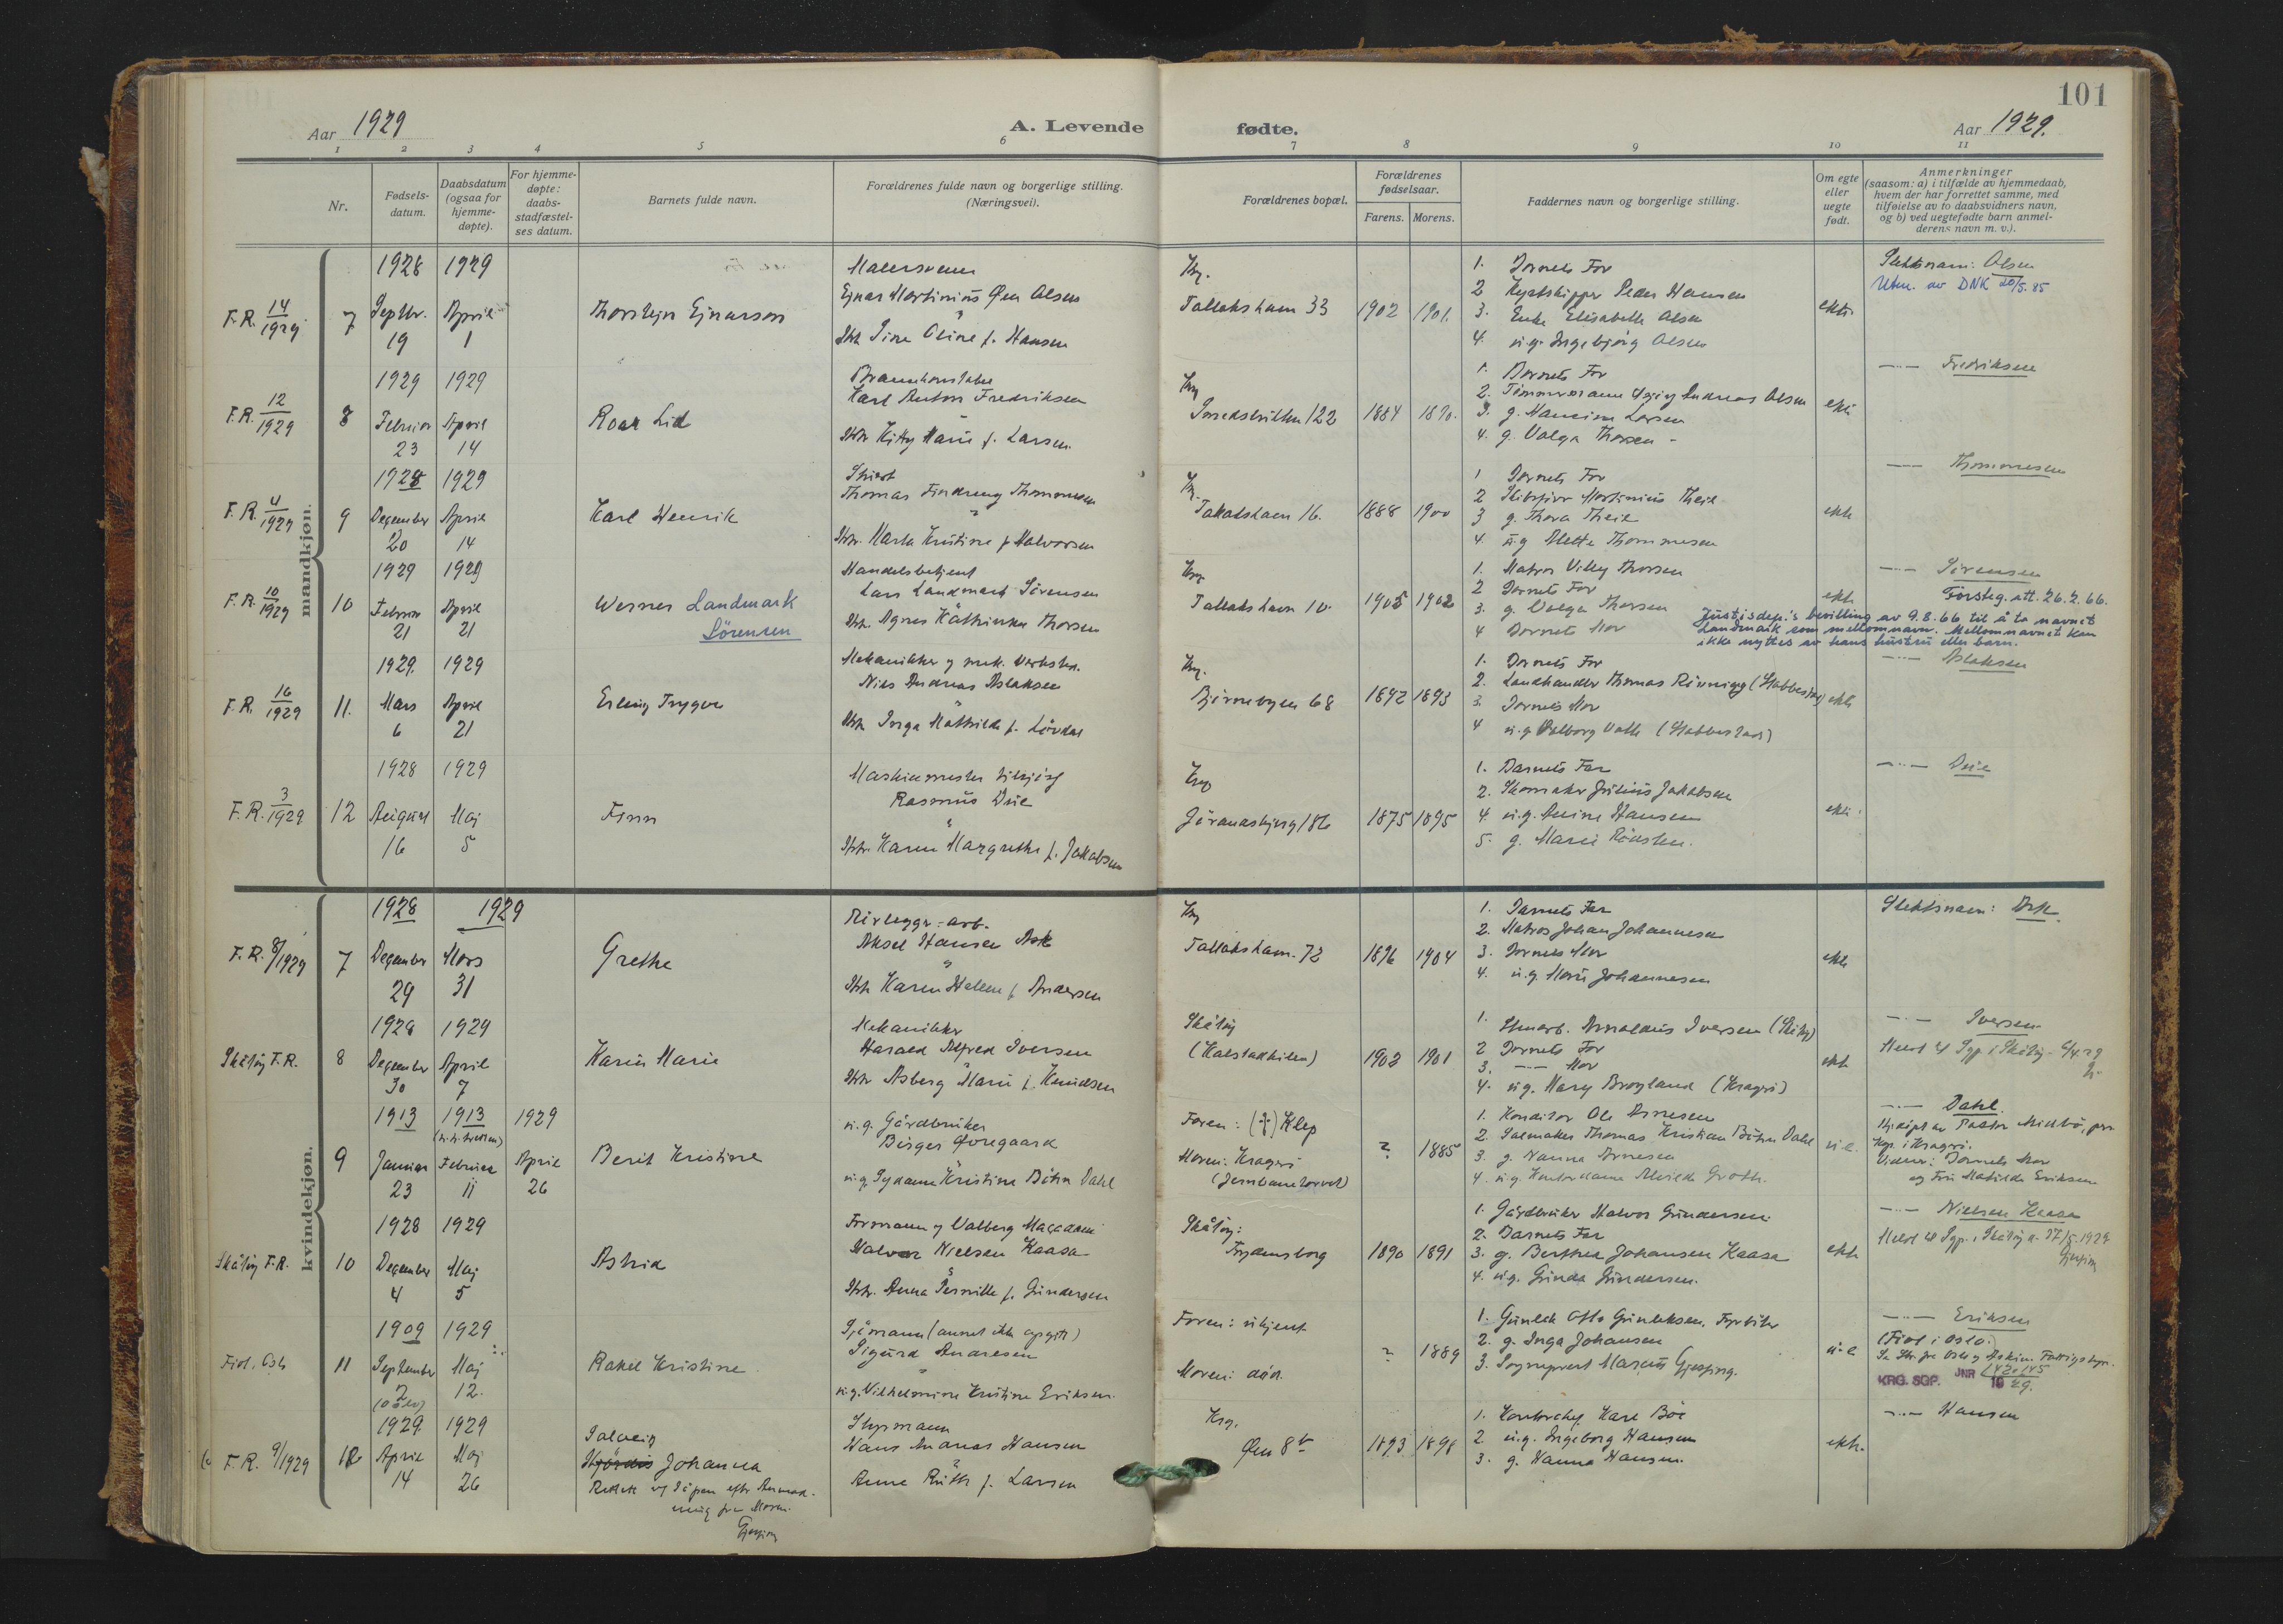 101
Aar 1929
A. Levende
fødte.
Aar 1929.
1 2 3 4 5 6 7 8 9 10 11
Nr.
Fødsels-
datum.
Daabsdatum
(ogsaa for
hjemme-
døpte).
For hjemme-
døpte:
daabs-
stadfæstel-
ses datum.
Barnets fulde navn.
Forældrenes fulde navn og borgerlige stilling.
(Næringsvei).
Forældrenes bopæl.
Forældrenes
fødselsaar.
Farens. Morens.
Faddernes navn og borgerlige stilling.
Om egte
eller
uegte
født.
Anmerkninger
(saasom: a) i tilfælde av hjemmedaab,
hvem der har forrettet samme, med
tilføielse av to daabsvidners navn,
og b) ved uegtefødte barn anmel-
derens navn m. v.).
mandkjøn.
F.R. 14/1929
7
1928
Septbr.
19
1929
April
1
Thorstejn Ejnarson
Malersvenn
Ejnar Martinius Øen Olsen
Hstr. Sina Oline f. Hansen
Krg.
Tallakshavn 33
1902 1901.
1. Barnets Far
2 Peder Hansen
3. Enke Elisabeth Olsen
4. u.g. Ingebjørg Olsen
ekte
Slektsnavn: Olsen
Utm. av DNK 20/5.85
F.R. 12/1929
8
1929
Februar
23
1929
April
14
Roar Lid
Karl Anton Fredriksen
Hstr. Kitty Marie f. Larsen.
Krg
122
1884 1890.
1. Barnets Far
2. Tømmermann Andreas Olsen
3. g. Larsen
4. g. Valga Thorsen -
ekte
—"— Fredriksen
F.R. 4/1929
9
1928
December
20
1929
April
14
Karl Henrik
Thomas Thommesen
Hstr. Marta Kristine f. Halvorsen
Krg.
Tallakshavn 16.
1888 1900
1 Barnets Far
2 Martinius Theil
3 g. Thora Theil
4. u.g Mette Thommesen
ekte
—"— Thommesen
F.R. 10/1929
10
1929
Februar
21
1929
April
21
Werner Landmark
Sörensen
Handelsbetjent
Lars Landmark Sörensen
Hstr. Agnes Kathinka Thorsen
Krg.
Tallakshavn 10.
1905 1902
1. Matros Villy Thorsen
2 Barnets Far
3. g. Valga Thorsen
4 Barnets Mor
ekte
—"— Sörensen
Førsteg. att. 26.2.66.
Justisdep.'s bevilling av 9.8.66 til å ta navnet
Landmark som mellomnavn. Mellomnavnet kan
ikke nyttes av hans hustru eller barn.
F.R. 16/1929
11.
1929.
Mars
6
1929
April
21
Erling Trygve
Mekanikker v mek. Verksted.
Nils Andreas Aslaksen
Hstr. Inga Mathilde f. Lövdal
Krg.
Bjørnebyen 68
1892 1893
1. Barnets Far
2. Landhandler Thomas Rönning (Stabbestad)
3. Barnets Mor
4 u.g Valborg Vatle (Stabbestad)
ekte
—"— Aslaksen
F.R. 3/1929
12
1928
August
16
1929
Maj
5
Finn
Maskinmester tilsjøs
Rasmus Due
Hstr. Karen Margrethe f. Jakobsen
Krg
186
1875 1895
1. Barnets Far
2. Skomaker Julius Jakobsen
4. u.g. Anine Hansen
5. g. Marie
ekte
—"— Due
kvindekjøn.
F.R. 8/1929
7
1928
December
29
1929
Mars
31
Grethe
Rörlegger-arb.
Aksel Hansen Ask
Hstr Karen Helene f. Andersen
Krg
Tallakshavn. 72
1896 1904
1. Barnets Far
2. Matros Johan Johannesen
3. Barnets Mor
4. u.g. Marie Johannesen
ekte
Slektsnavn: Ask.
Skåtöy F.R.
8
1928
December
30
1929
April
7
Karin Marie
Mekanikker
Harald Alfred Iversen
Hstr Asberg Marie f. Knudsen
Skåtöy
1902 1901
1. Arnoldus Iversen (Skåtöy)
2 Barnets Far
3. —"— Mor
4. u.g. Mary Brøyland (Kragerø)
ekte
—"— Iversen
Meldt til Sgp. i Skåtöy
9
1913
Januar
23
1913
Februar
11
1929
April
26
Berit Kristine
u.g. Gårdbruker
Birger Øvregaard
u.g. Kristine Böhn Dahl
Faren: (†) Klep
Moren: Kragerö
(Jernbanetorvet)
? 1885
1. Konditor Ole Arnesen
2. Seilmaker Thomas Kristian Böhn Dahl
3. g. Nanna Arnesen
4. u.g. Kontordame Alvilde Groth.
u.e.
—"— Dahl.
Hjdöpt av Pastor Midbö, pers.
kap. i Kragerö.
Vidner: Barnets Mor
og Fru Matilda Eriksen
Skåtöy F.R.
10
1928
December
4
1929
Maj
5
Astrid
Formann v Valberg Macadam
Halvor Nielsen Kaasa
Hstr. Anna Pernille f. Gundersen
Skåtöy:
Frydensborg
1890 1891
1. Gårdbruker Halvor Gundersen.
2. Barnets Far
3. g. Berthea Johansen Kaasa
4. u.g. Gunda Gundersen.
ekte
—"— Nielsen Kaasa
Meldt til Sgp. i Skåtöy 1929
Gjessing
Född, Oslo
11
1909
September
2
1929
Maj
12.
Rakel Kristine
Sjömann (annet ikke opgitt)
Sigurd Andresen
u.g. Vilhelmine Kristine Eriksen.
Faren: ukjent
Moren: död.
? 1889
1. Gunlek Otto Gunleksen, Fyrböter
2. g. Inga Johansen
3. Sogneprest Marcus Gjessing.
u.e
—"— Eriksen
(Född i Oslo.)
KRG. SGP. JNR
19 29.
F.R. 9/1929
12
1929.
April
14
1929
Maj
26
Solveig
Hjördis Johanna
Rettet efter
fra Moren.
Gjessing
Styrmann
Hans Marius Hansen
Anne Ruth f. Larsen
Krg.
Øen 8 b
1893 1898
1. Kontorchef Karl Böe
2. u.g. Ingeborg Hansen
3. g. Hanna Hansen.
ekte.
—"— Hansen